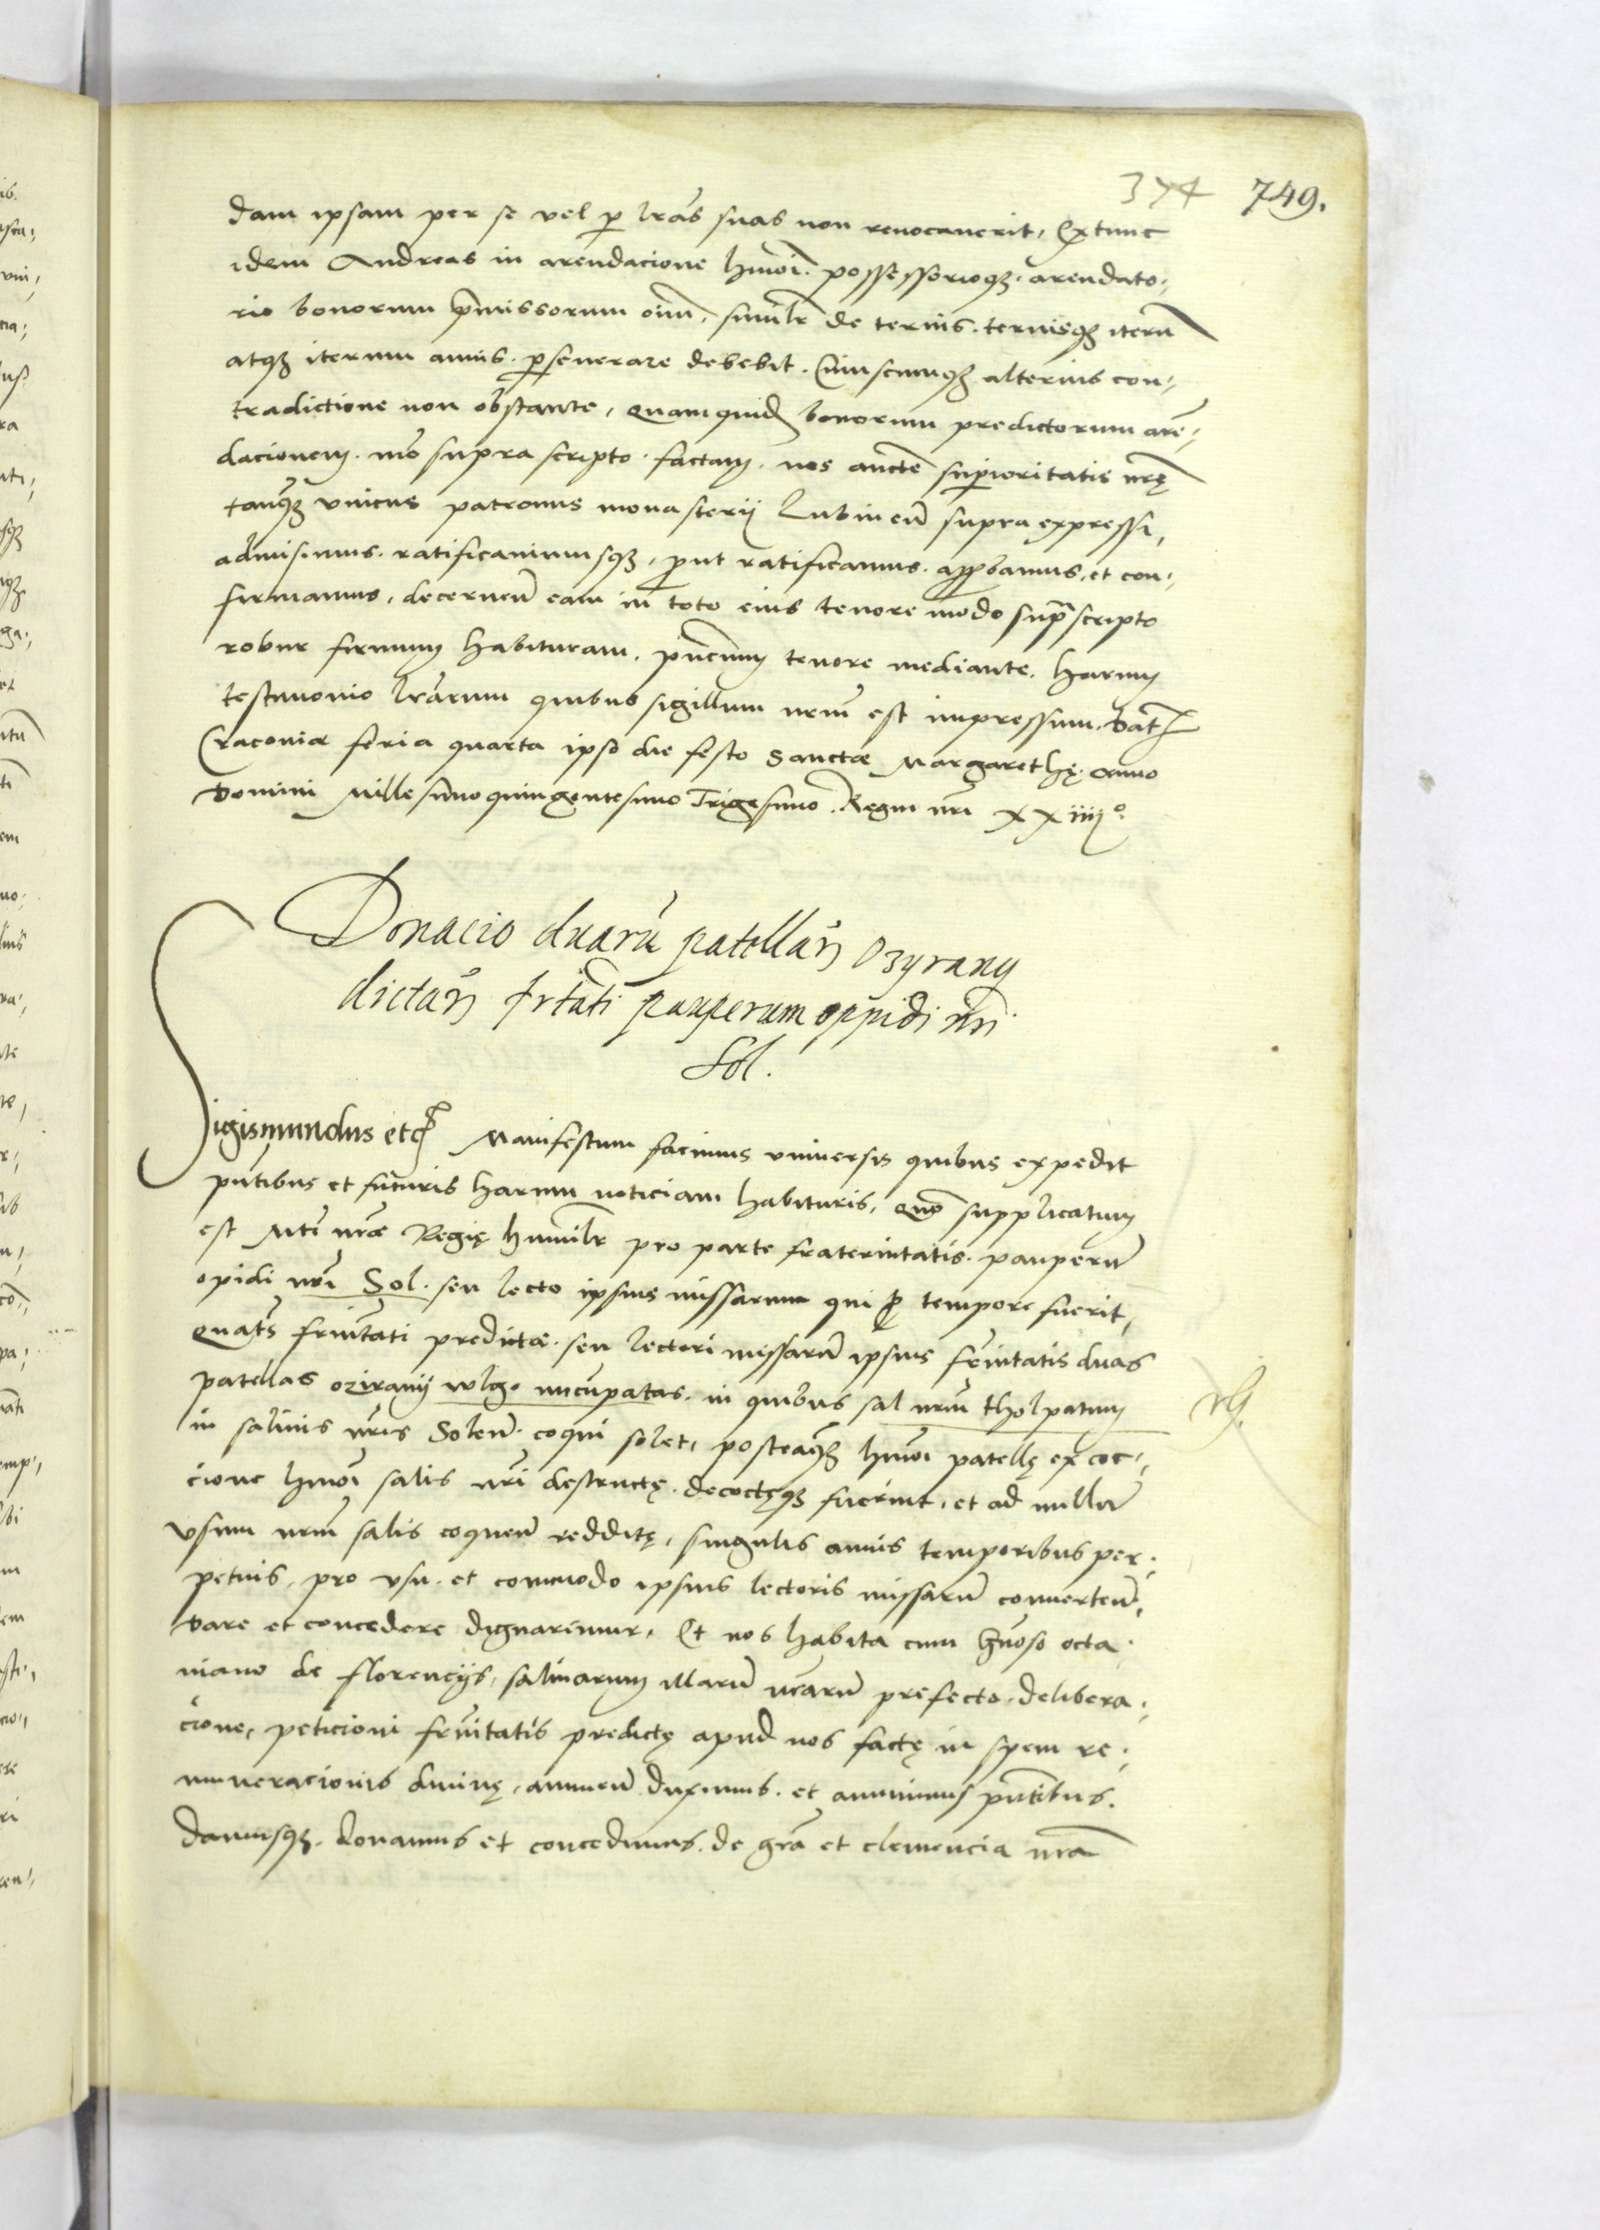 374 749.
dam ipsam per se vel p lras suas non revocaverit, Extunc
idem Andreas in arendacione hmoi possessorioqz arendato-
rio bonorum pmissorum oim, similr de ternis ternisqz iteru
atqz iterum annis pseverare debebit. Cuiuscunqz alterius con-
tradictione non obstante, quamquid bonorum predictorum aren-
dacionem mo supra scripto factam, nos aucte supioritatis nrę
tanqz unicus patronus monasterij Lubinen supra expressi,
admisimus ratificavimusqz, prout ratificamus, approbamus, et con-
firmamus, decernen eam in toto eius tenore modo supra scripto
robur firmum habituram, pncium tenore mediante. Harum
testimonio lrarum quibus sigillum nrum est impressum. Dat
Cracoviæ feria quarta ipso die festo Sanctæ Margarethę anno
Domini Millesimoquingentesimo Trigesimo. Regni nri xxiiij°.
Donacio duaru patellar Ozyrany
dictar frtati pauperum oppidi nri
Sol.
Sigismundus etc Manifestum facimus universis quibus expedit
pntibus et futuris harum noticiam habituris, quo supplicatum
est Mti nræ Regię humilr pro parte fraternitatis pauperu
opidi nri Sol seu lecto ipsius missarum qui p tempore fuerit,
quats frnitati predictæ seu lectori missaru ipsius frnitatis duas
patellas oziranij wlgo nucupatas in quibus sal nrum tholpatum
in salinis nris Solen coqui solet, posteaqz hmoi patellę ex coc-
cione hmoi salis nri destructę decoctęqz fuerint, et ad nullu
usum nrum salis coquen redditę, singulis annis temporibus per-
petuis, pro usu et commodo ipsius lectoris missaru converten,
dare et concedere dignaremur, Et nos habita cum gnoso octa-
viano de florencijs, salinarum illaru nraru prefecto, delibera-
cione, peticioni frnitatis predictę apud nos factę in spem re-
muneracionis divinę, annuen duximus et annuimus pntibus.
Damusqz donamus et concedimus de gra et clemencia nra